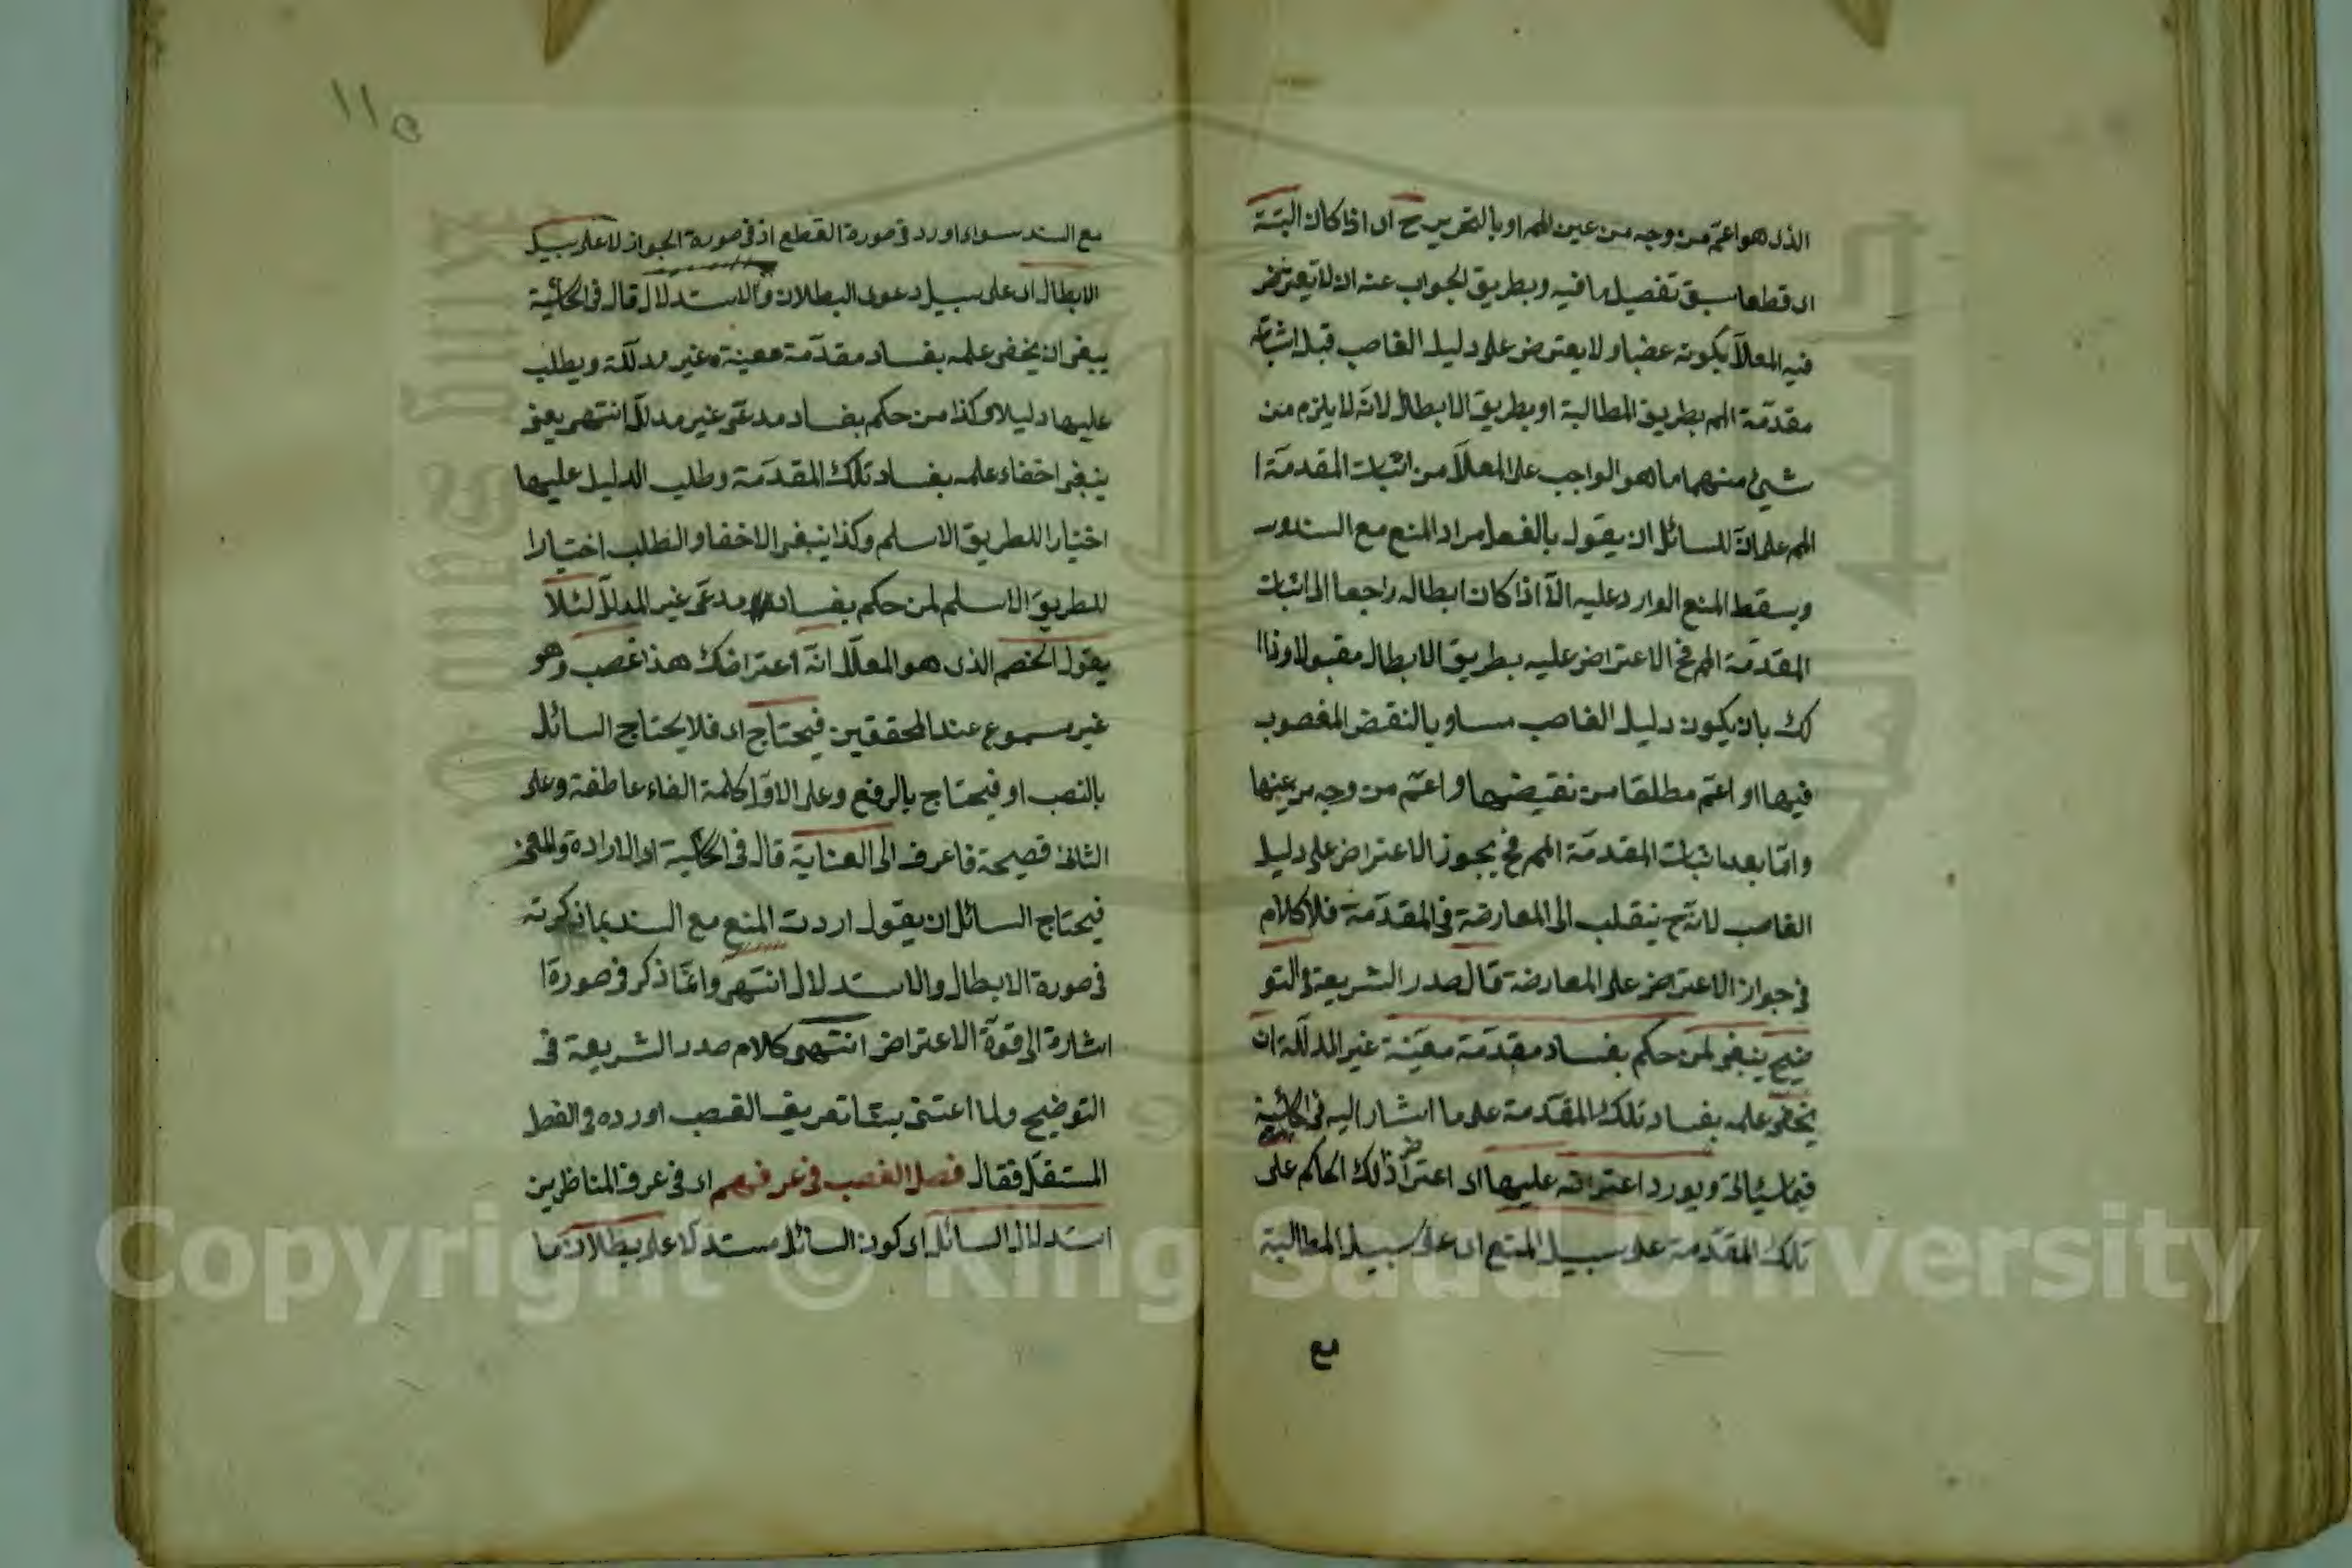 الذى هو اعم من وجه من عين المم او بالتحرير ح اى اذا كان البتة
اى قطعا سبق تفصيل ما فيه وبطريق الجواب عنه ان لا يعترض
فيه المعلل بكونه غصبا ولا يعترض على دليل الغاصب قبل اثباته
مقدمة المم بطريق المطالبة او بطريق الابطال لانه لا يلزم من
شئ منهما ما هو الواجب على المعلل من اثبات المقدمة ا
المم على ان للسائل ان يقول بالفعل مراد المنع مع السند
ويسقط المنع الوارد عليه الا اذا كان ابطاله راجعا الى اثبات
المقدمة المم فح الاعتراض عليه بطريق الابطال مقبولا وذا ا
كك بان يكون دليل الغاصب مساويا لنقض المغصوب
فيها او اعم مطلقا من نقيضها او اعم من وجه من عينها
واما بعد اثبات المقدمة المم فح يجوز الاعتراض على دليل
الغاصب لانه ح ينقلب الى المعارضة فى المقدمة فلا كلام
فى جواز الاعتراض على المعارضة قال صدر الشريعة فى التو
ضيح ينبغى لمن حكم بفساد مقدمة معينة غير المدللة ان
يخفى علمه بفساد تلك المقدمة على ما اشار اليه فى الحاشية
فيما سيأتى ويورد اعتراضه عليها اى اعتراض ذلك الحاكم على
تلك المقدمة على سبيل المنع اى على سبيل المطالبة
مع
١١٥
مع السند سواء اورد فى صورة القطع او فى صورة الجواز لا على سبيل
الابطال اى على سبيل دعوى البطلان والاستدلال قال فى الحاشية
ينبغى ان يخفى علمه بفساد مقدمة معينة غير مدللة ويطلب
عليها دليلا وكذا من حكم بفساد مدعى غير مدلل انتهى يعنى
ينبغى اخفاء علمه بفساد تلك المقدمة وطلب الدليل عليها
اختيارا للطريق الاسلم وكذا ينبغى الاخفاء والطلب اختيارا
للطريق الاسلم لمن حكم بفساد مدعى غير المدلل لئلا
يقول الخصم الذى هو المعلل انه اعتراضك هذا غصب وهو
غير مسموع عند المحققين فيحتاج اى فلا يحتاج السائل
بالنصب او فيحتاج بالرفع وعلى الاول كلمة الفاء عاطفة وعلى
الثانى فصيحة فاعرف الى العناية قال فى الحاشية اى الارادة والمعنى
فيحتاج السائل ان يقول اردت المنع مع السند بما ذكرته
فى صورة الابطال والاستدلال انتهى وانما ذكر فى صورة ا
اشارة الى قوة الاعتراض انتهى كلام صدر الشريعة فى
التوضيح ولما اعتنى تعريف الغصب اورده فى الفصل
المستقل فقال فصل الغصب فى عرفهم اى فى عرف المناظرين
استدلال السائل اى كون السائل مستدلا على بطلان ما
Copyright © King Saud University